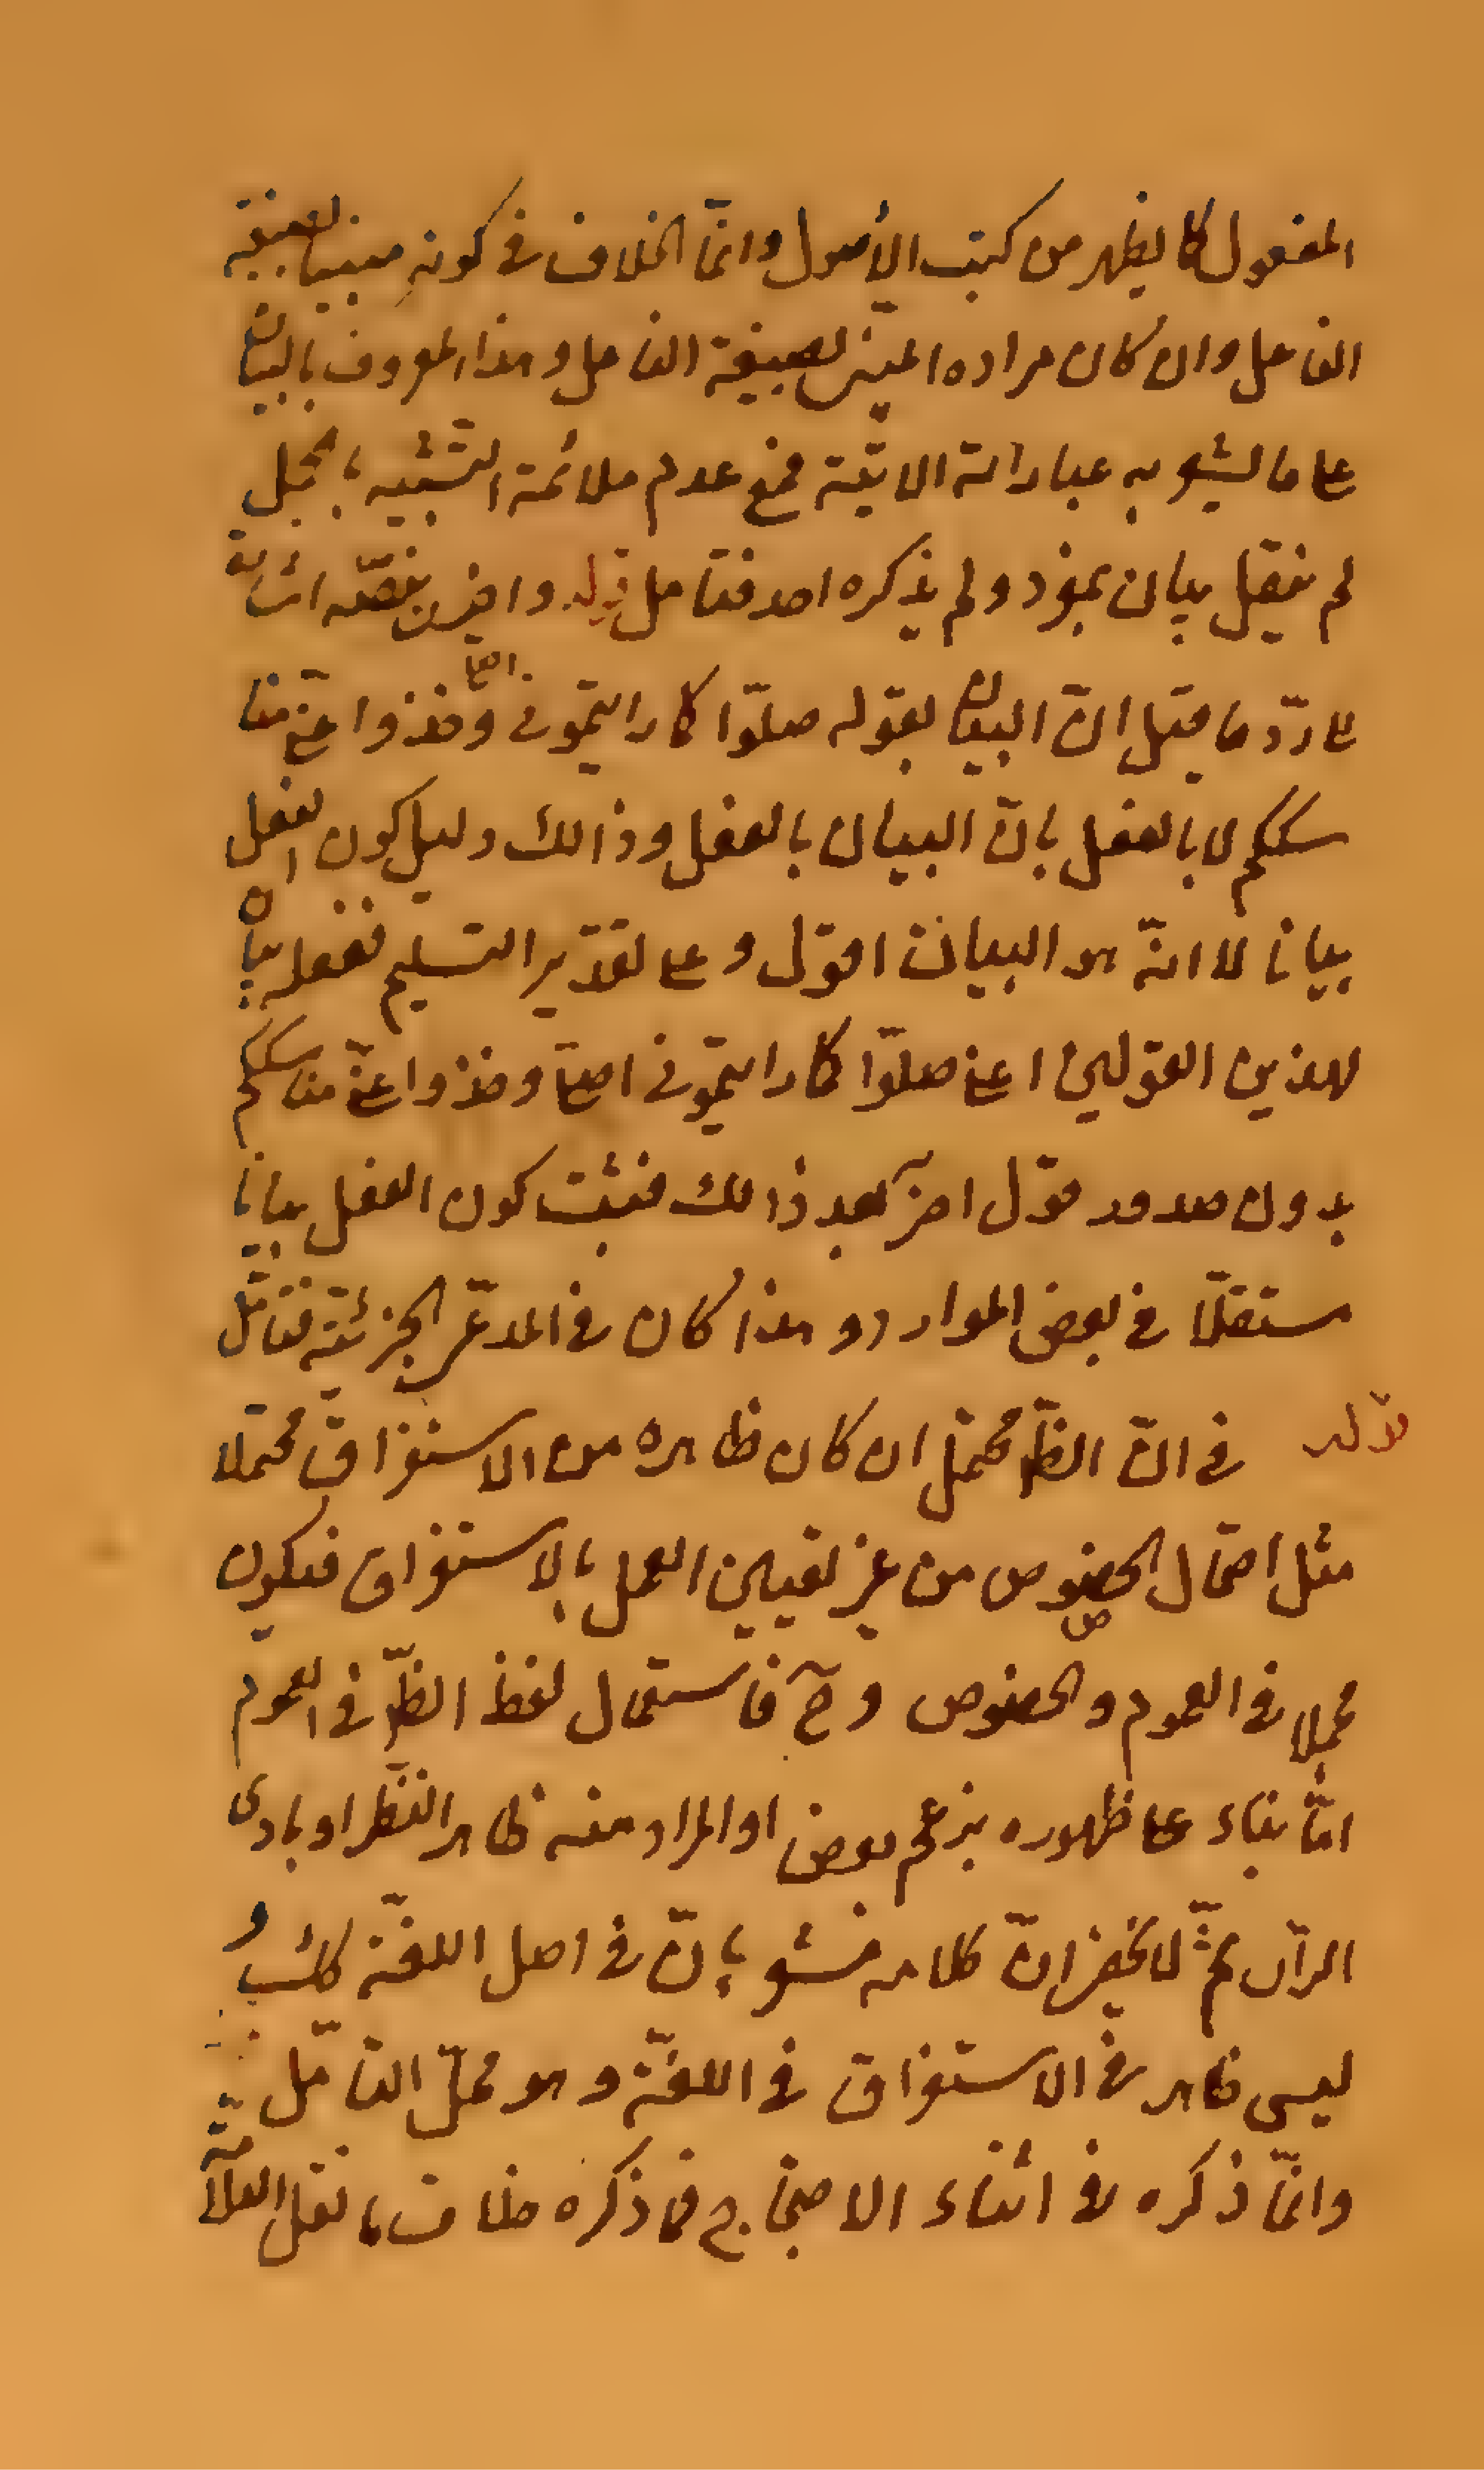 المفعول كما يظهر من كتب الأصول وانمّا الخلاف فى كونهِ مبينا بصيغة
الفاعل وان كان مراده المبيّن بصيغة الفاعل وهذا المعروف بالبيان
على ما يشعر به عباراته الاتيّة فمع عدم ملائمة التّشبيه بالمجمل
لم ينقل بيان بمفرد ولم يذكره احد فتامل قوله واخرى بنصّه اشارة
على ردّ ما قيل انّ البيان بقوله صلّوا كما رايتمونى اصلى وخذوا عنّى منا
سككم لا بالفعل بانّ البيان بالفعل وذالك دليل كون الفعل
بيانا لا انّه هو البيان اقول وعلى تقدير التسليم ففعله بيان
لهذين القولين اعنى صلّوا كما رايتمونى اصلى وخذوا عنّى مناسككم
بدون صدور قول اخر بعد ذالك فثبت كون الفعل بيانا
مستقلّا فى بعض الموارد وهذا كان فى المدعّى الجزئيّة فتامّل
قوله فى انّ الظّ محتمل ان كان ظاهره من الاستغراق محتملا
مثل احتمال الخصوص من غير تعيين العمل بالاستغراق فيكون
مجملا فى العموم والخصوص وحّ فاستعمال لفظ الظّ فى العموم
امّا بناء على ظهوره بزعم بعض او المراد منه ظاهر النّظر او بادى
الرّاى ثمّ لا يخفى انّ كلامه مشعر بانّ فى اصل اللغة كلب و
ليس ظاهر فى الاستغراق فى اللغة وهو محلّ التامّل
وانمّا ذكره فى اثناء الاحتجاج فما ذكره خلاف ما نقل العلّامة